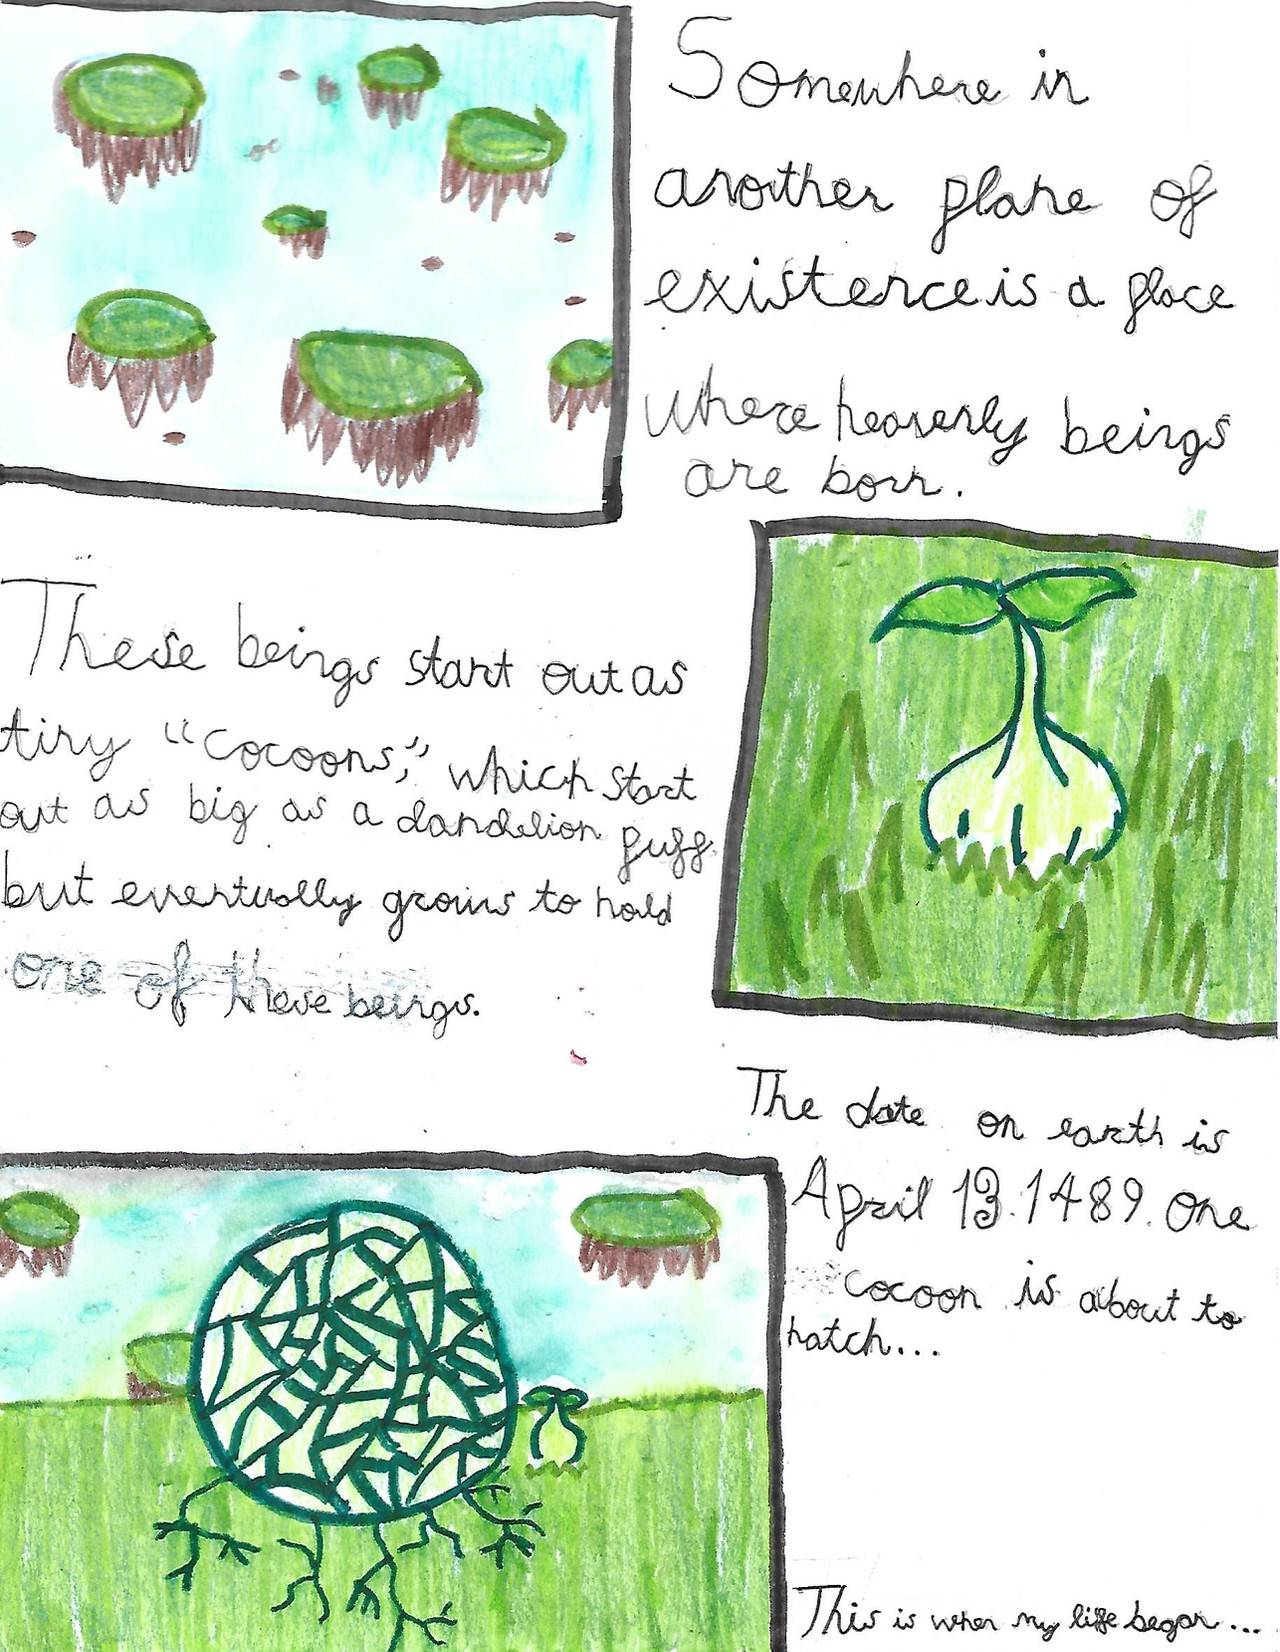 Somewhere in
another plane of
existence is a place
where heavenly beings
are born.
These beings start out as
tiny "cocoons," which start
out as big as a dandelion fuff
but eventually grows to hold
one of these beings.
The date on earth is
April 13. 1489. One
cocoon is about to
hatch...
This is when my life began...